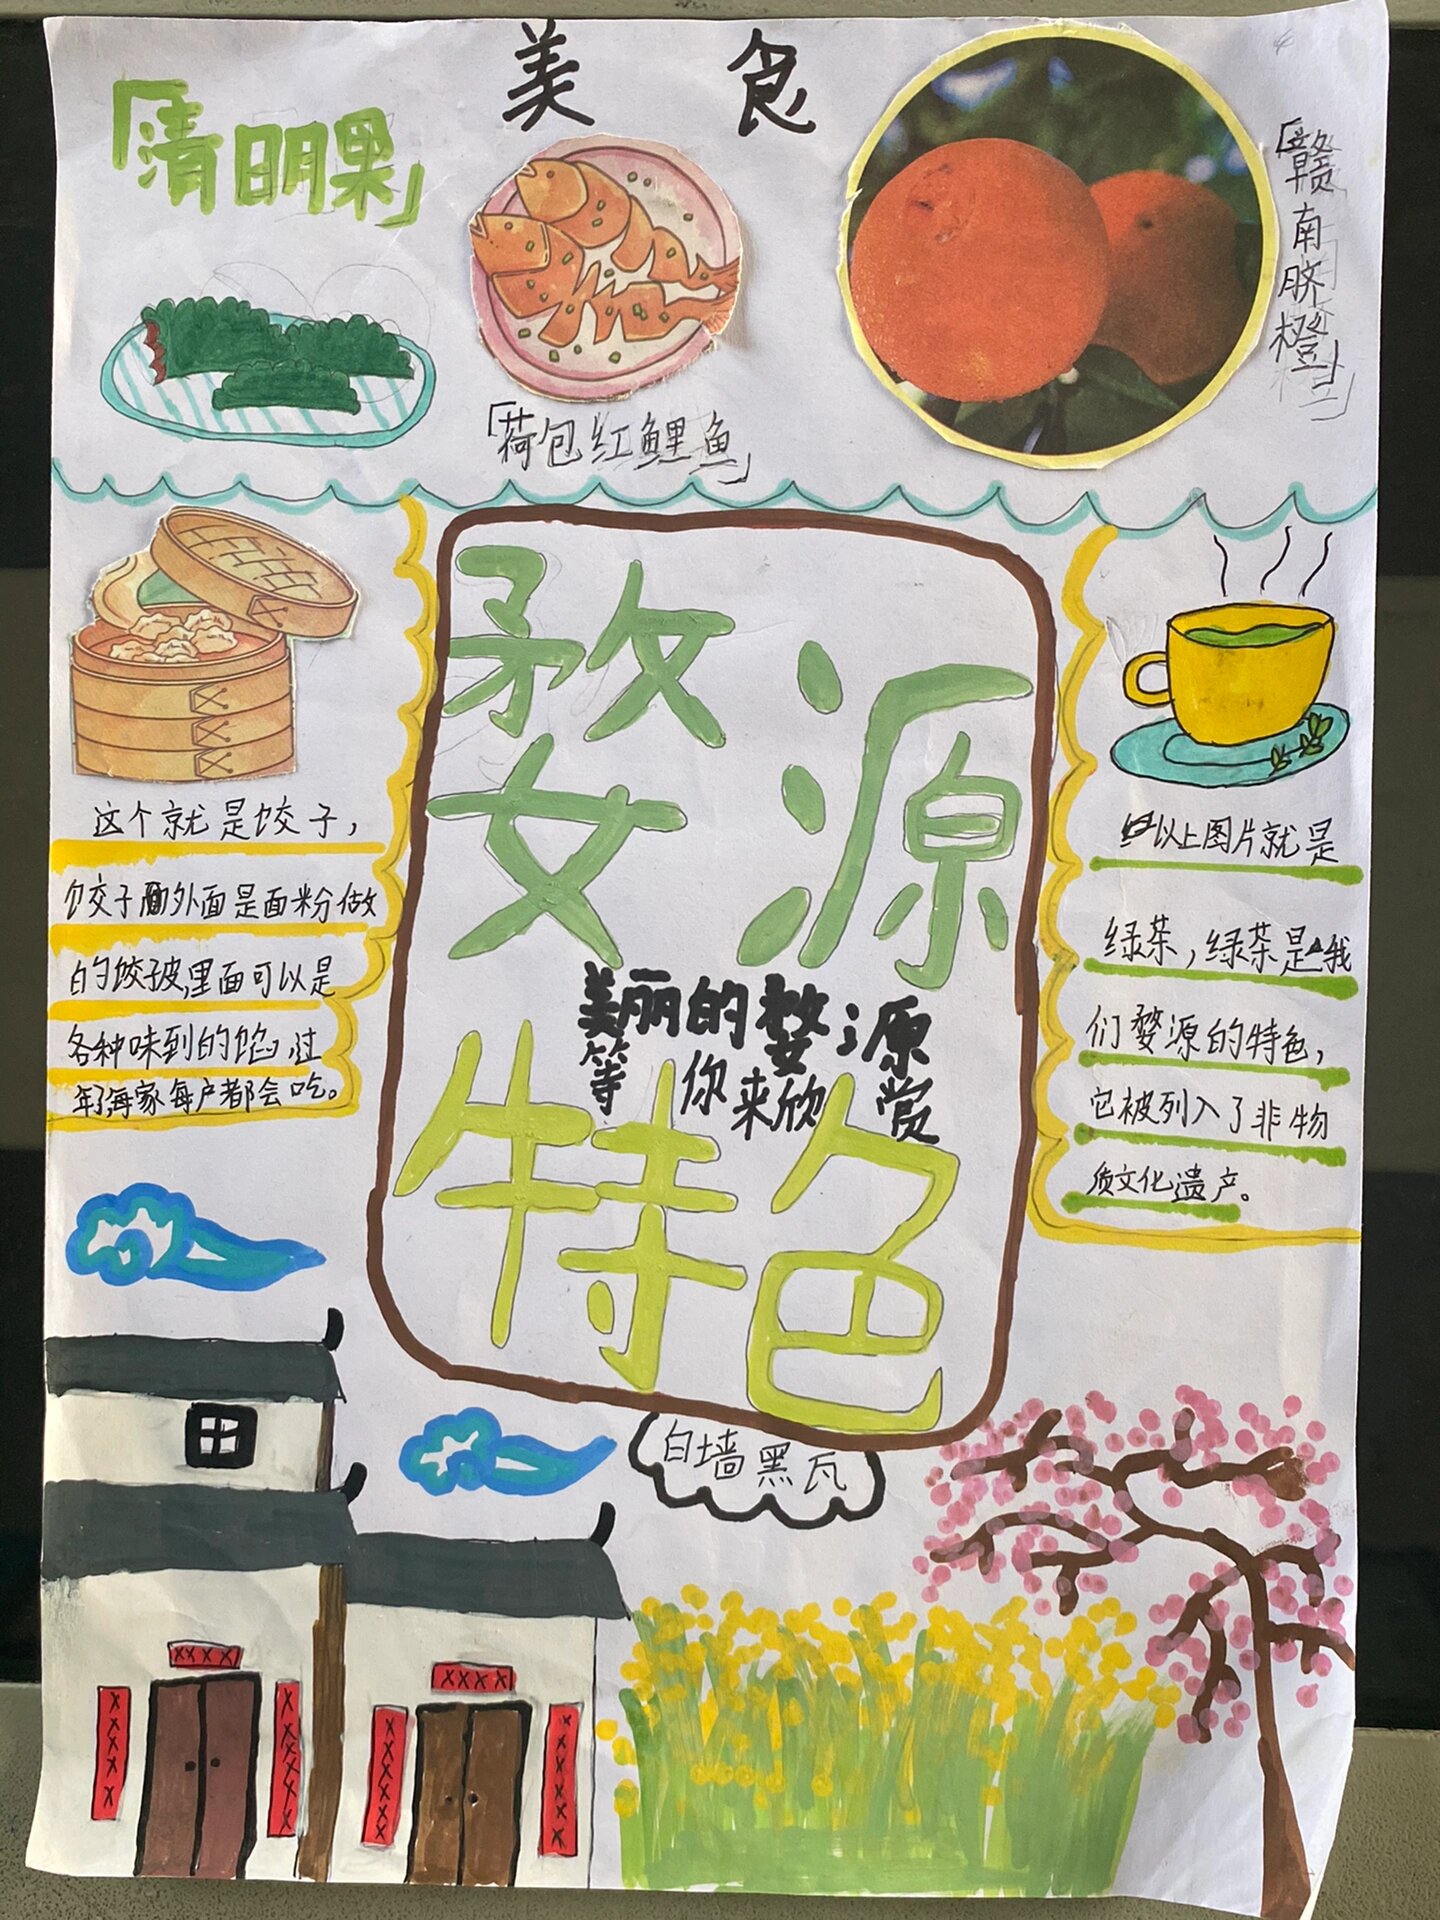 美食
「清明果」
「荷包红鲤鱼」
「赣南脐橙」
婺源
美丽的婺源
等你来欣赏
特色
这个就是饺子，
饺子的外面是面粉做
的饺子皮,里面可以是
各种味到的馅，过
年了每家每户都会吃。
以上图片就是
绿茶，绿茶是我
们婺源的特色，
它被列入了非物
质文化遗产。
白墙黑瓦